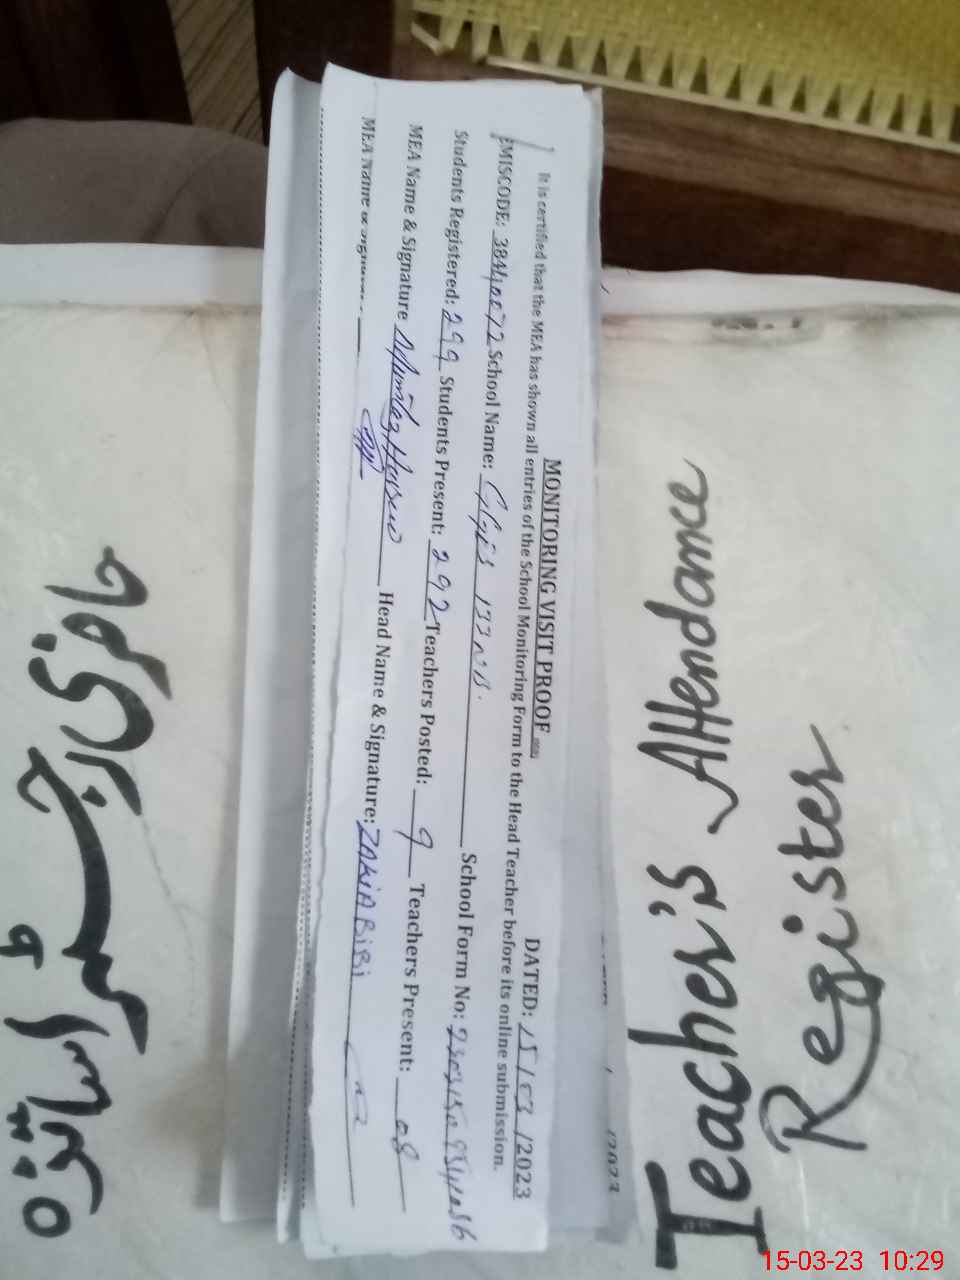 MONITORING VISIT PROOF
DATED: 15/03/2023
It is certified that the MEA has shown all entries of the School Monitoring Form to the Head Teacher before its online submission.
EMISCODE: 38440072 School Name: School Form No:
Students Registered: 299 Students Present: 292 Teachers Posted: 9 Teachers Present: 08
MEA Name & Signature Head Name & Signature: ZAKIA BiBi
MEA Name
Teacher's Attendance
Register
حاضری رجسٹر اساتذہ
/2023
15-03-23 10:29